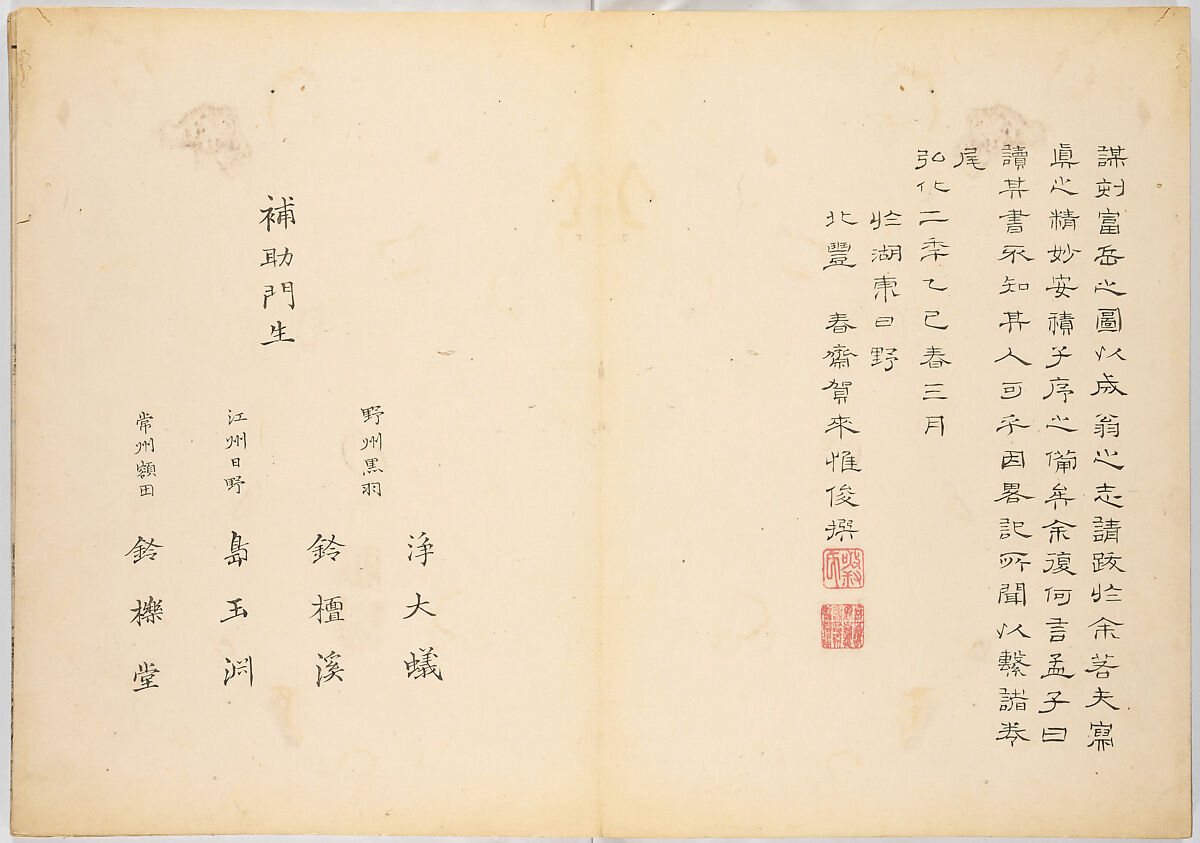 謀刻富岳之圖以成翁之志請跋於余若夫寫
眞之精妙安積子序之備矣余復何言孟子曰
讀其書不知其人可乎因畧記所聞以繫諸卷
尾
弘化二季乙巳春三月
於湖東日野
北豐 春齋賀來惟俊撰
補助門生
野州黒羽
淨大蟻
鈴檀溪
江州日野
島玉渕
常州額田
鈴櫟堂